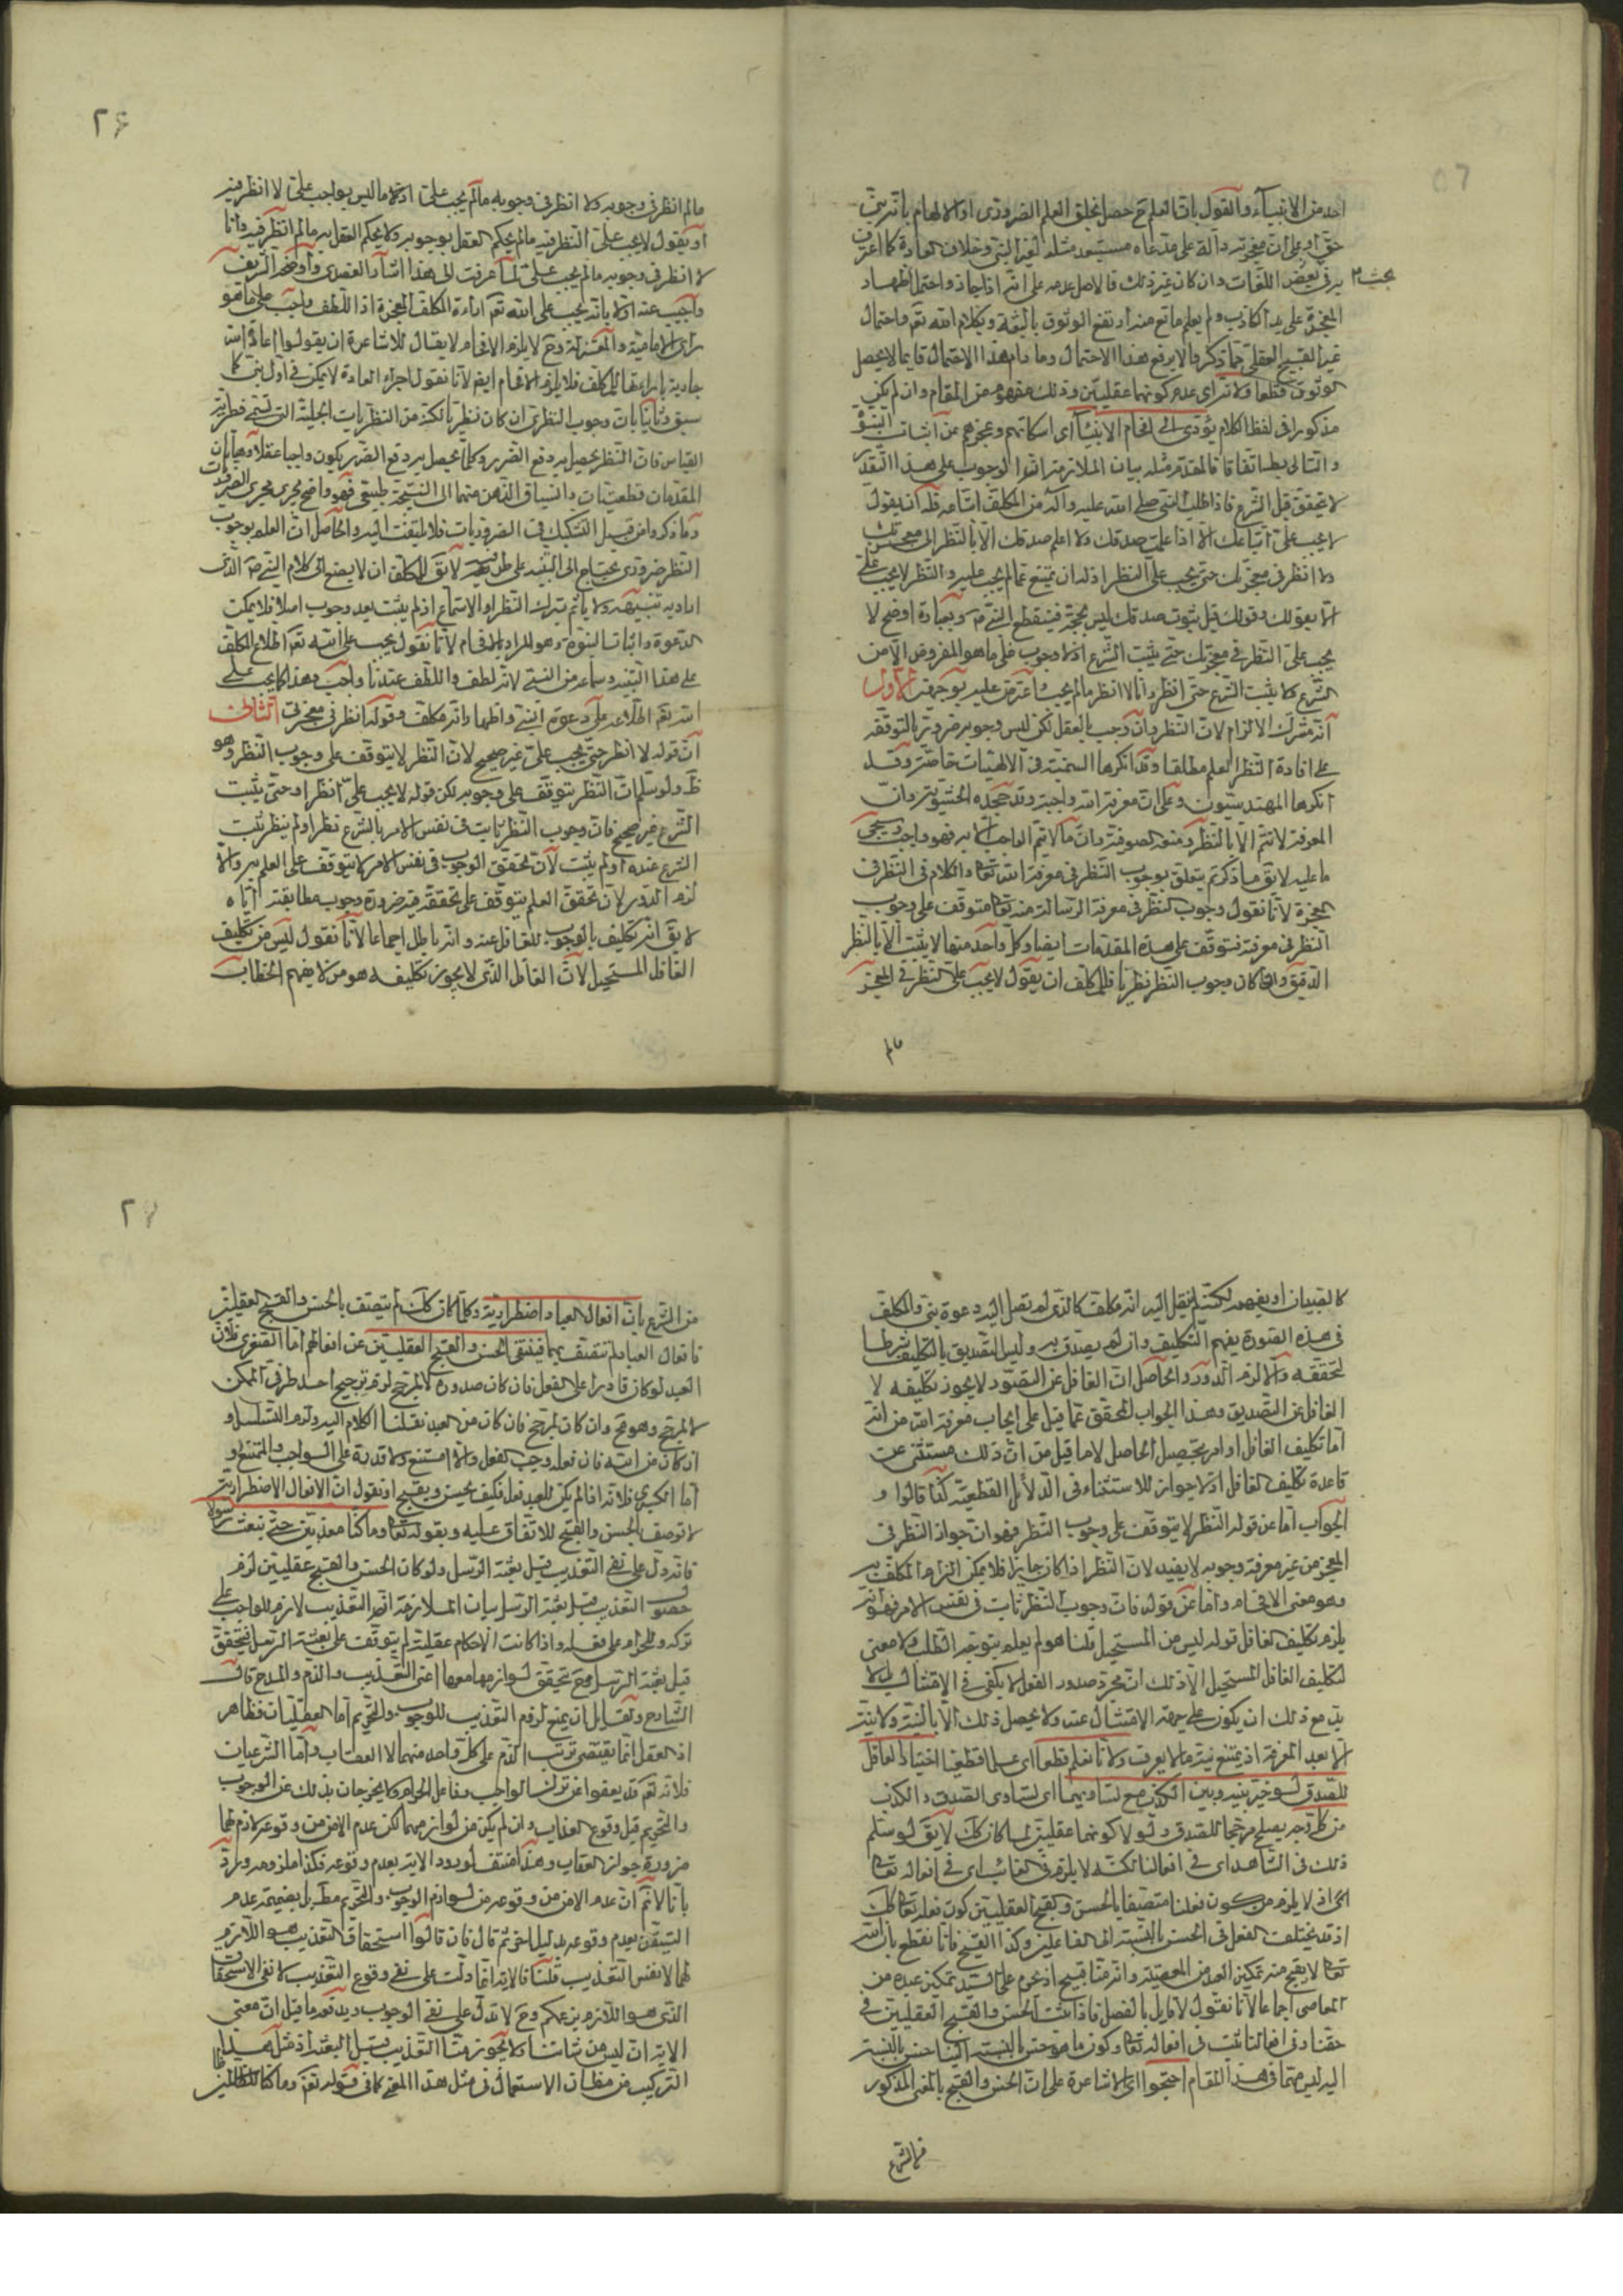 احد من الانبياء والقول بان العلم ح حصل بخلق العلم الضرورى او الالهام بانه نبى
حق او على ان معجزته دالة على مدعاه مستبعد مثله لغير النبى وخلاف العادة كما اعترف
به فى بعض اللغات وان كان غير ذلك فالاصل عدمه على انه اذا جاز واحتمل اظهار
بحث
المعجزة على يد الكاذب ولم يعلم مانع منه ارتفع الوثوق بالبعثة وبكلام الله تع واحتمال
غير القبيح العقلى مما ذكر لا يرفع هذا الاحتمال وما دام هذا الاحتمال قايما لا يحصل
الوثوق قطعا ولانه اى عدم كونهما عقليين وذلك مفهوم من المقام وان لم يكن
مذكورا فى لفظ الكلام يؤدى الى افحام الانبياء اى اسكاتهم وعجزهم عن اثبات النبوة
والتالى بط اتفاقا فالمقدم مثله بيان الملازمة ان الوجوب على هذا التقدير
لا يتحقق قبل الشرع فاذا طلب النبى صلى الله عليه وآله من المكلف اتباعه فله ان يقول
لا يجب على اتباعك الا اذا علمت صدقك ولا اعلم صدقك الا بالنظر الى معجزتك
ولا انظر فى معجزتك حتى يجب على النظر اذ له ان يمتنع عما لم يجب عليه والنظر لا يجب على
الا بقولك وقولك قبل ثبوت صدقك ليس بحجة فينقطع النبى ص وبعبارة اوضح لا
يجب على النظر فى معجزتك حتى يثبت الشرع اذ لا وجوب على ما هو المفروض الا من
الشرع ولا يثبت الشرع حتى انظر وانا لا انظر ما لم يجب واعترض عليه بوجهين الاول
انه مشترك الالزام لان النظر وان وجب بالعقل لكن ليس وجوبه ضرورية بالتوقفه
على افادة النظر العلم مطلقا وقد انكرها السمنية وفى الالهيات خاصة وقد
انكرها المهندسيون وعلى ان معرفة الله واجبة وقد جحده الحشوية وان
المعرفة لا تتم الا بالنظر ومنعه الصوفية وان ما لا يتم الواجب الا به فهو واجب وسيجى
ما عليه لا يق ما ذكرتم يتعلق بوجوب النظر فى معرفة الله تعا والكلام فى النظر فى
المعجزة لانا نقول وجوب النظر فى معرفة الرسالة منه تعا متوقف على وجوب
النظر فى معرفته فتوقف على هذه المقدمات ايضا وكل واحد منها لا يثبت الا بالنظر
الدقيق واذا كان وجوب النظر نظريا فللمكلف ان يقول لا يجب على النظر فى المعجز
مالم
٢٦
مالم انظر فى وجوبه ولا انظر فى وجوبه مالم يجب على اذ لا ما ليس بواجب على لا انظر فيه
او يقول لا يجب على النظر فيه مالم يحكم العقل بوجوبه ولا يحكم العقل به مالم انظر فيه وانا
لا انظر فى وجوبه مالم يجب على لما عرفت الى هذا اشار العضدى واوضحه الشريف
واجيب عنه اولا بانه يجب على الله تع اراءة المكلف المعجزة اذ اللطف واجب على ما هو
راى الامامية والمعتزلة وح لا يلزم الافحام لا يقال للاشاعرة ان يقولوا عادة الله
جارية بارائتها للمكلف فلا يلزم الافحام ايضا لانا نقول اجراء العادة لا يمكن فى اول نبى كما
سبق وثانيا بان وجوب النظر وان كان نظريا لكنه من النظريات الجلية التى تسمى فطرية
القياس فان النظر يحصل به دفع الضرر وكلما يحصل به دفع الضرر يكون واجبا عقلا وهاتان
المقدمتان قطعيتان وانسياق الذهن منهما الى النتيجة طبيعى فهو واضح يجرى مجرى الضروريات
وما ذكروه من قبيل التشكيك فى الضروريات فلا يلتفت اليه والحاصل ان العلم بوجوب
النظر ضرورى يحتاج الى التنبيه على طرفيه لا يق للمكلف ان لا يصغى الى كلام النبى ص الذى
اراد به تنبيهه ولا ياثم بترك النظر او الاستماع اذ لم يثبت بعد وجوب اصلا فلا يمكن
الدعوة واثبات النبوة وهو المراد بالافحام لانا نقول يجب على الله تع اطلاع المكلف
على هذا التنبيه وسماعه من النبى لانه لطف واللطف عندنا واجب وهذا كما يجب على
الله تع اطلاعه على دعوة النبى واظهار انه مكلف وقوله انظر فى معجزتى الثانى
ان قوله لا انظر حتى يجب على غير صحيح لان النظر لا يتوقف على وجوب النظر وهو
ظ ولو سلم ان النظر يتوقف على وجوبه لكن قوله لا يجب على انظر او حتى يثبت
الشرع غير صحيح فان وجوب النظر ثابت فى نفس الامر بالشرع نظر او لم ينظر ثبت
الشرع عنده او لم يثبت لان تحقق الوجوب فى نفس الامر لا يتوقف على العلم به والا
لزم الدور لان تحقق العلم يتوقف على تحققه ضرورة وجوب مطابقته اياه
لا يق انه تكليف بالوجوب للغافل عنه وانه باطل اجماعا لانا نقول ليس من تكليف
الغافل المستحيل لان الغافل الذى لا يجوز تكليفه هو من لا يفهم الخطاب
كالصبيان او يفهم لكنه لم يقل اليه انه مكلف كالذى لم تصل اليه دعوة نبى والمكلف
فى هذه الصورة يفهم التكليف وان لم يصدق به وليس التصديق بالتكليف شرطا
لتحققه والا لزم الدور والحاصل ان الغافل عن التصور لا يجوز تكليفه لا
الغافل عن التصديق وهذا الجواب المحقق عما قيل على ايجاب معرفة الله من انه
اما تكليف الغافل او امر بتحصيل الحاصل لا ما قيل من ان ذلك مستثنى عن
قاعدة تكليف الغافل اذ لا جواز للاستثناء فى الدلائل القطعية كذا قالوا و
الجواب اما عن قوله النظر لا يتوقف على وجوب النظر فهو ان جواز النظر فى
المعجز من غير معرفة وجوبه لا يفيد لان النظر اذا كان جايزا فلا يمكن الزام المكلف به
وهو معنى الافحام واما عن قوله فان وجوب النظر ثابت فى نفس الامر فهو انه
يلزم تكليف الغافل قوله ليس من المستحيل قلنا هو لم يعلم بتوجه الطلب ولا معنى
لتكليف الغافل المستحيل الا ذلك ان مجرد صدور الفعل لا يكفى فى الامتثال بل لا
بد مع ذلك ان يكون على جهة الامتثال عنه ولا يحصل ذلك الا بالنية ولا نية
الا بعد المعرفة اذ يمتنع نية ما لا يعرف ولانا نعلم قطعا اى علما قطعيا اختيار العاقل
للصدق لو خير بينه وبين الكذب مع تساويهما اى تساوى الصدق والكذب
من كل وجه يصلح مرجحا للصدق ولولا كونهما عقليين لما كان كك لا يق لو سلم
ذلك فى الشاهد اى فى افعالنا لكنه لا يلزم فى الغائب اى فى افعاله تعا
اى اذ لا يلزم من كون فعلنا متصفا بالحسن والقبح العقليين كون فعله تعا كك
اذ قد يختلف الفعل فى الحسن بالنسبة الى الفاعلين وكذا القبح فانا نقطع بان الله
تعا لا يقبح منه تمكين العبد من المعصية وانه منا قبيح اذ يحرم على السيد تمكين عبده من
المعاصى اجماعا لانا نقول لا قايل بالفصل فاذا ثبت الحسن والقبح العقليين فى
حقنا وفى افعالنا ثبت فى افعاله تعا وكون ما هو حسن بالنسبة الينا حسن بالنسبة
اليه ليس مهما فى هذا المقام احتجوا اى الاشاعرة على ان الحسن والقبح بالمعنى المذكور
من الشرع
٢٧
من الشرع بان افعال العباد اضطرارية وكلما كان كك لم يتصف بالحسن والقبح العقليين
فافعال العباد لم تتصف بهما فينتفى الحسن والقبح العقليين عن افعالهم اما الصغرى فلان
العبد لو كان قادرا على الفعل فان كان صدوره لا لمرجح لزم ترجيح احد طرفى الممكن
لا لمرجح وهو مح وان كان لمرجح فان كان من العبد نقلنا الكلام اليه ولزم التسلسل و
ان كان من الله فان فعله وجب الفعل والا امتنع ولا قدرة على الواجب والممتنع و
اما الكبرى فلانه اذا لم يكن للعبد فعل فكيف يحسن ويقبح او نقول ان الافعال الاضطرارية
لا توصف بالحسن والقبح للاتفاق عليه وبقوله تعا وما كنا معذبين حتى نبعث رسولا
فانه دل على نفى التعذيب قبل بعثة الرسل ولو كان الحسن والقبح عقليين لزم
حصول التعذيب قبل بعثة الرسل بيان الملازمة ان التعذيب لازم للواجب على
تركه وللحرام على فعله واذا كانت الاحكام عقلية لم يتوقف على بعثة الرسل فيتحقق
قبل بعثة الرسل وح تحقق لوازمها معها اعنى التعذيب والذم والمدح قال
الشارح ولقايل ان يمنع لزوم التعذيب للوجوب والتحريم اما العقليات فظاهر
اذ العقل انما يقتضى ترتب الذم على كل واحد منهما لا العقاب واما الشرعيات
فلانه تع قد يعفو عن ترك الواجب وفاعل الحرام ولا يخرجان بذلك عن الوجوب
والتحريم قبل وقوع العذاب وان لم يكن من لوازمهما لكن عدم الامن من وقوعه لازم لهما
ضرورة جواز العقاب وهذا منتف لورود الاية بعدم وقوعه فكذا ملزومه ويرد
بانا لا نم ان عدم الامن من وقوعه من لوازم الوجوب والتحريم مط بل بضميمة عدم
التيقن بعدم وقوعه بدليل اخر ثم قال فان قالوا استحقاق التعذيب هو اللازم
لهما لا نفس التعذيب قلنا فالاية انما دلت على نفى وقوع التعذيب لا نفى الاستحقاق
الذى هو اللازم بزعمكم وح لا تدل على نفى الوجوب ويدفعه ما قيل ان معنى
الاية ان ليس من شاننا ولا يجوز منا التعذيب قبل البعثة اذ مثل هذا
التركيب من مظان الاستعمال فى مثل هذا المعنى كما فى قوله تع وما كنا ظالمين